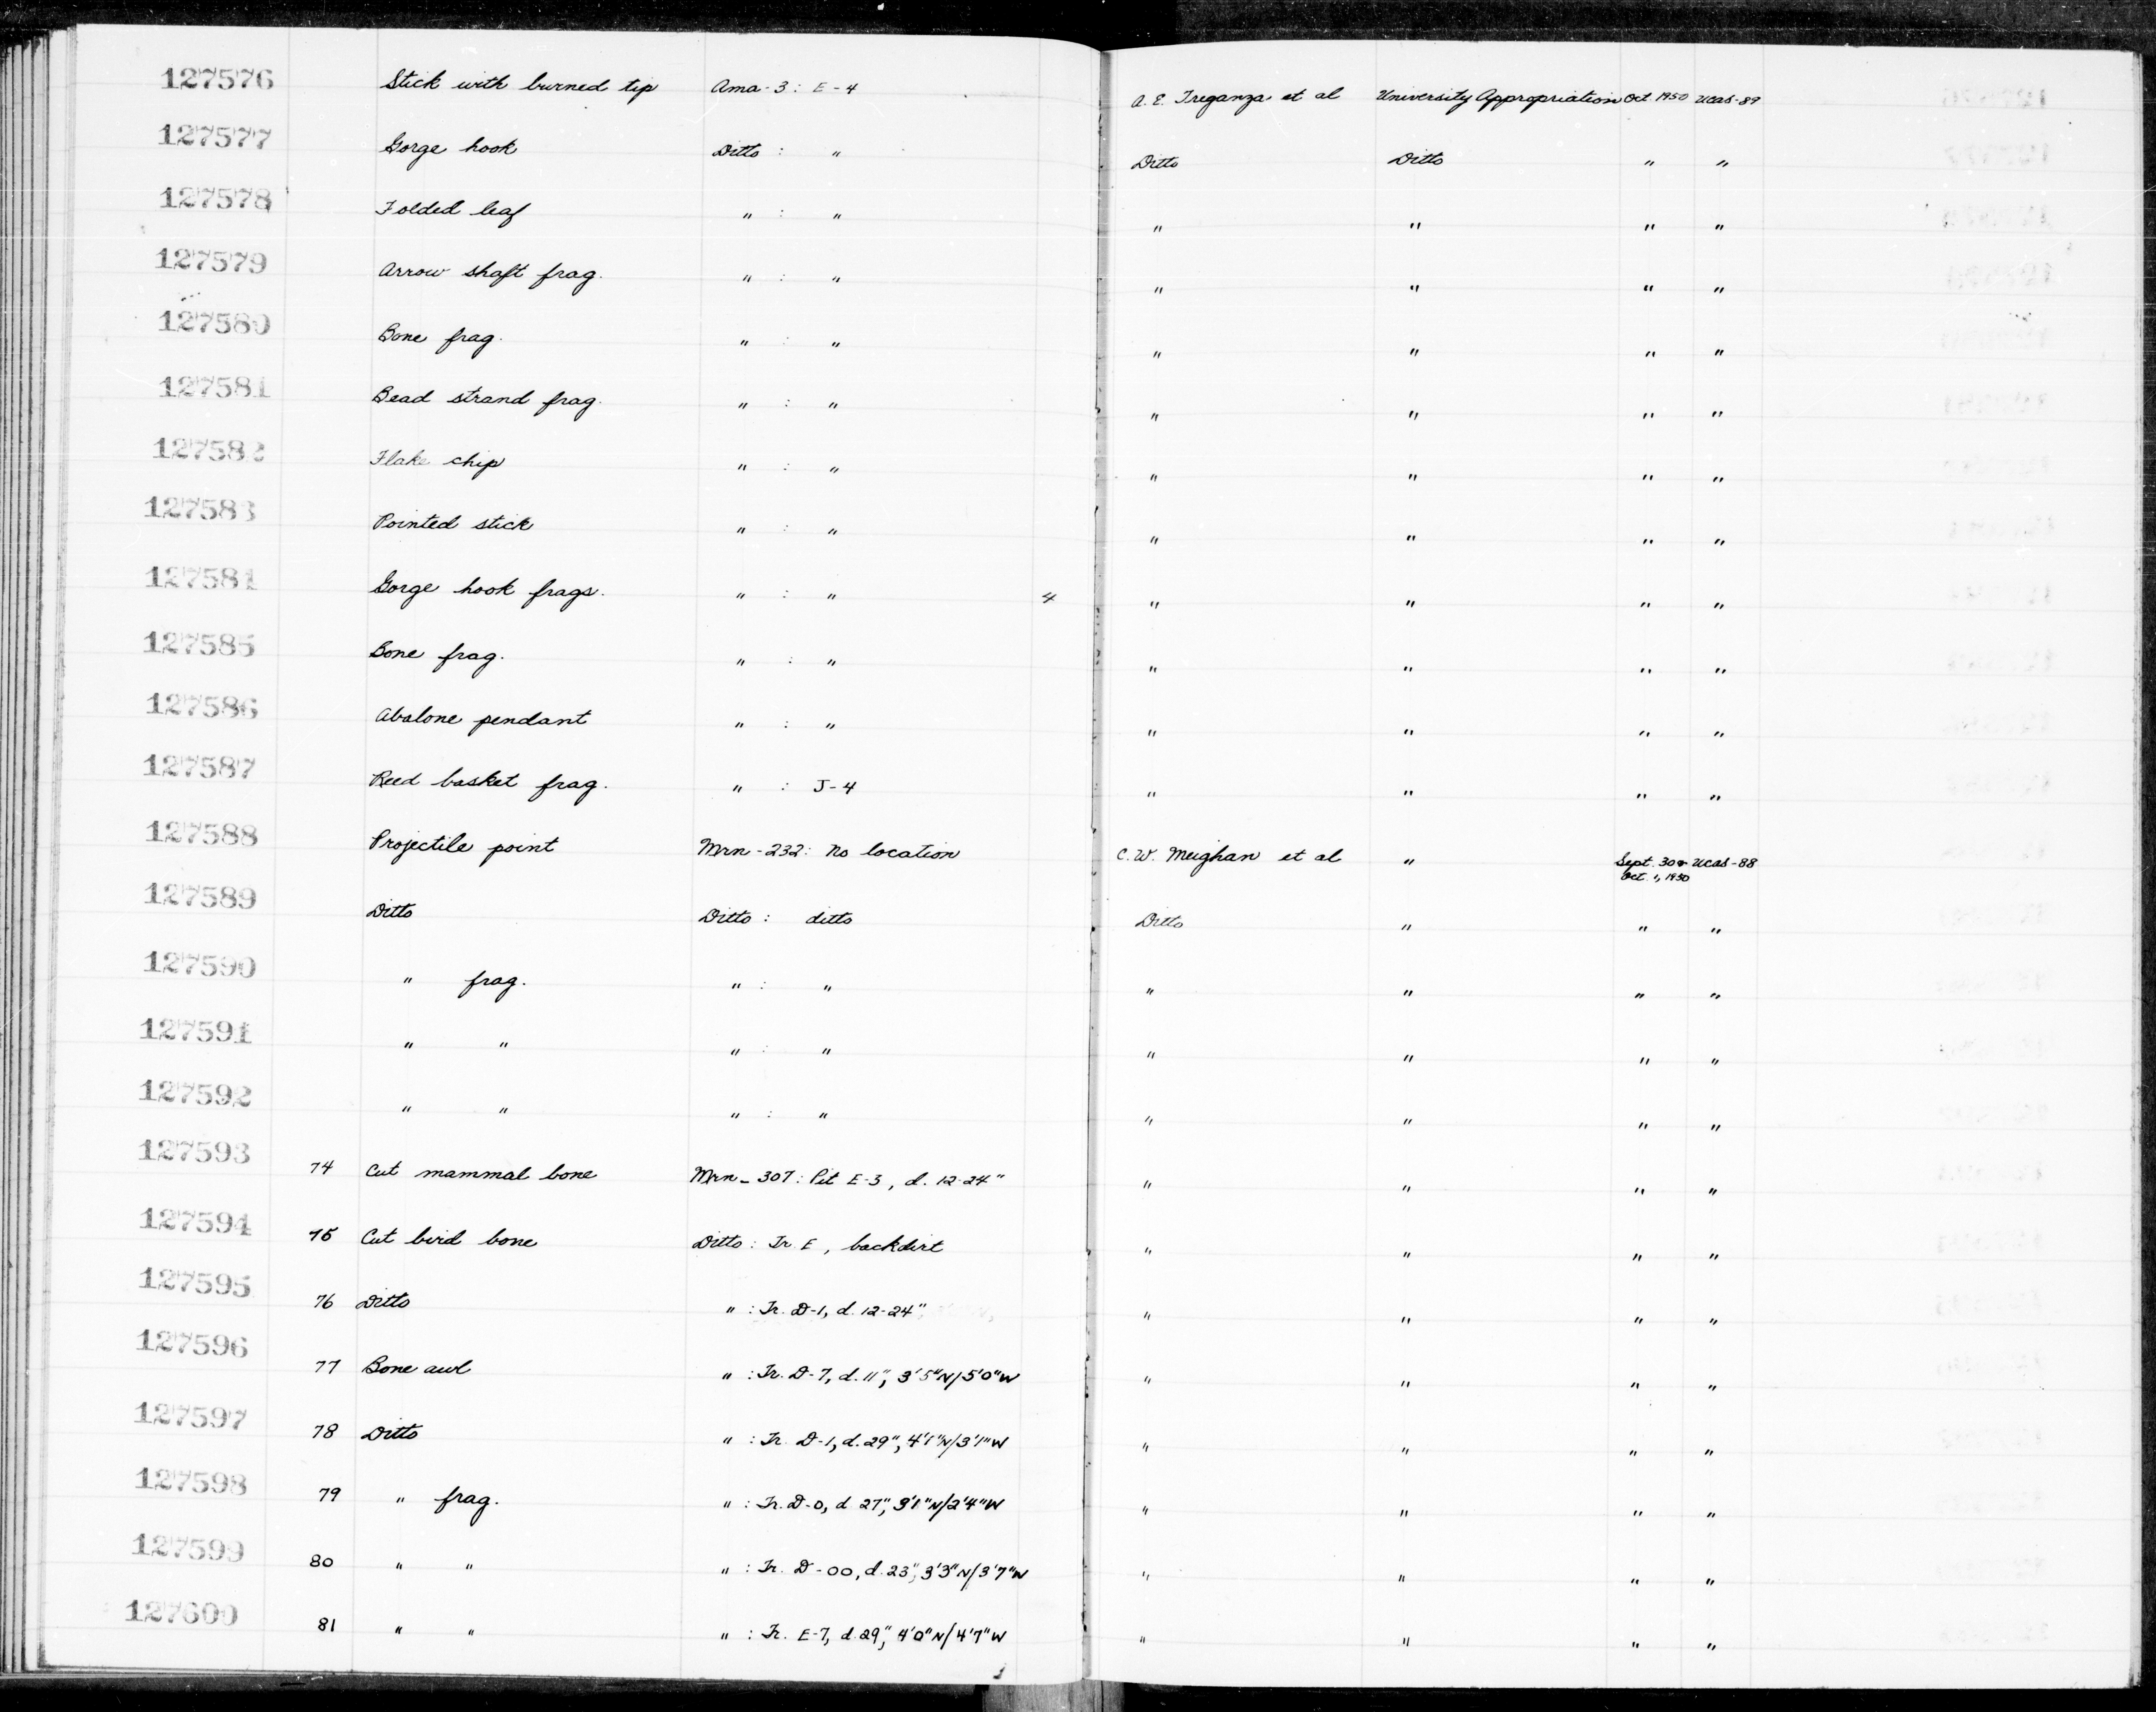 127576 Stick with burned tip Ama-3: E-4 A. E. Treganza et al University Appropriation Oct. 1950 UCAS-89
127577 Gorge hook Ditto : " Ditto Ditto " "
127578 Folded leaf " : " " " " "
127579 Arrow shaft frag. " : " " " " "
127580 Bone frag. " : " " " " "
127581 Bead strand frag. " : " " " " "
127582 Flake chip " : " " " " "
127583 Pointed stick " : " " " " "
127584 Gorge hook frags. " : " 4 " " " "
127585 Bone frag. " : " " " " "
127586 Abalone pendant " : " " " " "
127587 Reed basket frag. " : J-4 " " " "
127588 Projectile point Mrn-232: No location C. W. Meighan et al " Sept. 30 & UCAS-88
Oct. 1, 1950
127589 Ditto Ditto : ditto Ditto " " "
127590 " frag. " : " " " " "
127591 " " " : " " " " "
127592 " " " : " " " " "
127593 74 Cut mammal bone Mrn-307: Pit E-3, d. 12-24" " " " "
127594 75 Cut bird bone Ditto: Tr. E, backdirt " " " "
127595 76 Ditto " : Tr. D-1, d. 12-24" " " " "
127596 77 Bone awl " : Tr. D-7, d. 11", 3'5"N/5'0"W " " " "
127597 78 Ditto " : Tr. D-1, d. 29", 4'1"N/3'1"W " " " "
127598 79 " frag. " : Tr. D-0, d 27", 3'1"N/2'4"W " " " "
127599 80 " " " : Tr. D-00, d. 23", 3'3"N/3'7"W " " " "
127600 81 " " " : Tr. E-7, d. 29", 4'0"N/4'7"W " " " "